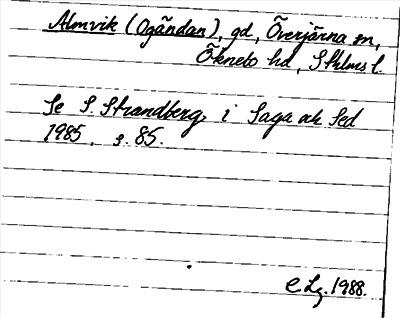 Almvik (Ogändan), gd, Överjärna sn,
Öknebo hd, Sthlms l.
Se S. Strandberg, i Saga och Sed
1985, s. 85.
E Lg. 1988.